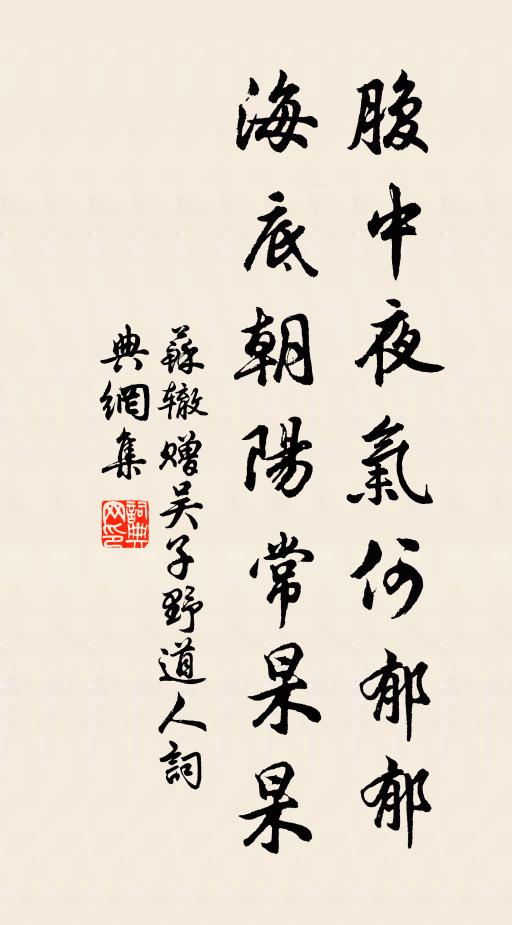 腹中夜氣何郁郁
海底朝陽常杲杲
蘇轍贈吴子野道人詞
典網集
詞典網印